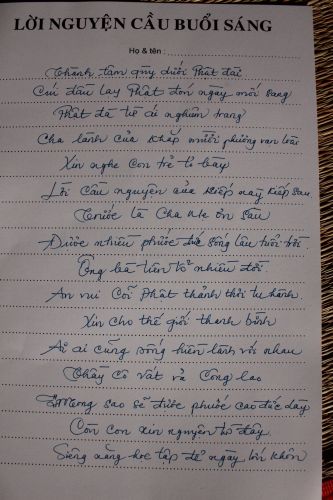 LỜI NGUYỆN CẦU BUỔI SÁNG
Họ & tên :
Thành tâm quỳ dưới Phật đài
Cúi đầu lạy Phật đón ngày mới sang
Phật đà từ ái nghiêm trang
Cha lành của khắp mười phương vạn loài
Xin nghe con trẻ tỏ bày
Lời cầu nguyện của kiếp này kiếp sau
Trước là Cha Mẹ ơn sâu
Được nhiều phước sống lâu tuổi trời
Ông bà tiên tổ nhiều đời
An vui Cõi Phật thảnh thơi tu hành.
Xin cho thế giới thanh bình
Ai ai cũng sống hiền lành với nhau
Thầy cô vất vả công lao
Mong sao sẽ được phước cao đức dày
Còn con xin nguyện từ đây
Siêng năng học tập để ngày lớn khôn